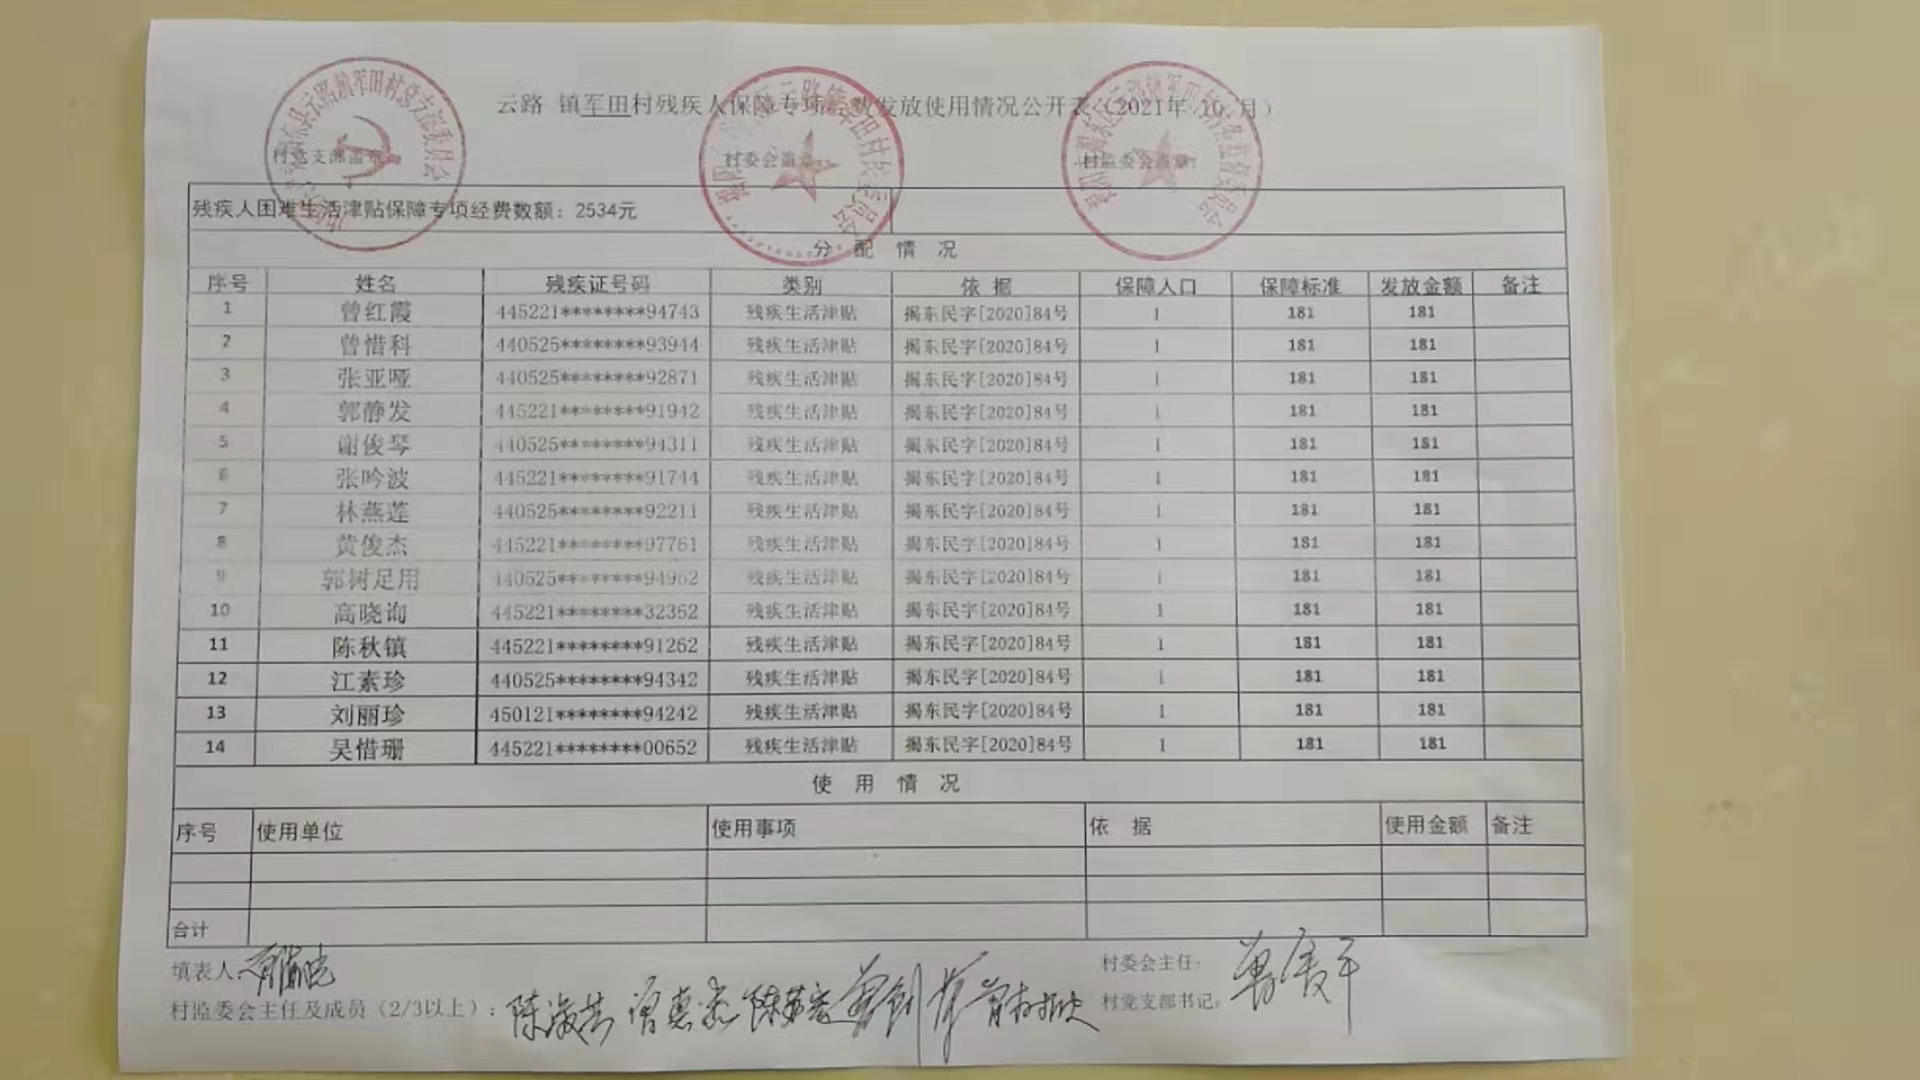 云路 镇军田村残疾人保障专项经费发放使用情况公开表（2021年 10 月）
村党支部盖章 村委会盖章 村监委会盖章：
残疾人困难生活津贴保障专项经费数额：2534元
分 配 情 况
序号 姓名 残疾证号码 类别 依 据 保障人口 保障标准 发放金额 备注
1 曾红霞 445221********94743 残疾生活津贴 揭东民字[2020]84号 1 181 181
2 曾惜科 440525********93944 残疾生活津贴 揭东民字[2020]84号 1 181 181
3 张亚哑 440525********92871 残疾生活津贴 揭东民字[2020]84号 1 181 181
4 郭静发 445221********91942 残疾生活津贴 揭东民字[2020]84号 1 181 181
5 谢俊琴 440525********94311 残疾生活津贴 揭东民字[2020]84号 1 181 181
6 张吟波 445221********91744 残疾生活津贴 揭东民字[2020]84号 1 181 181
7 林燕莲 440525********92211 残疾生活津贴 揭东民字[2020]84号 1 181 181
8 黄俊杰 445221********97761 残疾生活津贴 揭东民字[2020]84号 1 181 181
9 郭树足用 440525********94962 残疾生活津贴 揭东民字[2020]84号 1 181 181
10 高晓询 445221********32362 残疾生活津贴 揭东民字[2020]84号 1 181 181
11 陈秋镇 445221********91262 残疾生活津贴 揭东民字[2020]84号 1 181 181
12 江素珍 440525********94342 残疾生活津贴 揭东民字[2020]84号 1 181 181
13 刘丽珍 450121********94242 残疾生活津贴 揭东民字[2020]84号 1 181 181
14 吴惜珊 445221********00652 残疾生活津贴 揭东民字[2020]84号 1 181 181
使 用 情 况
序号 使用单位 使用事项 依 据 使用金额 备注
合计
填表人： 村委会主任：
村监委会主任及成员（2/3以上）： 村党支部书记：